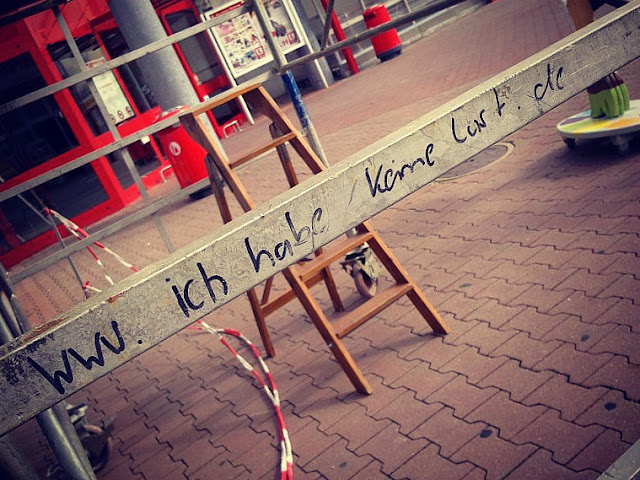 www. ich habe keine Lust. de